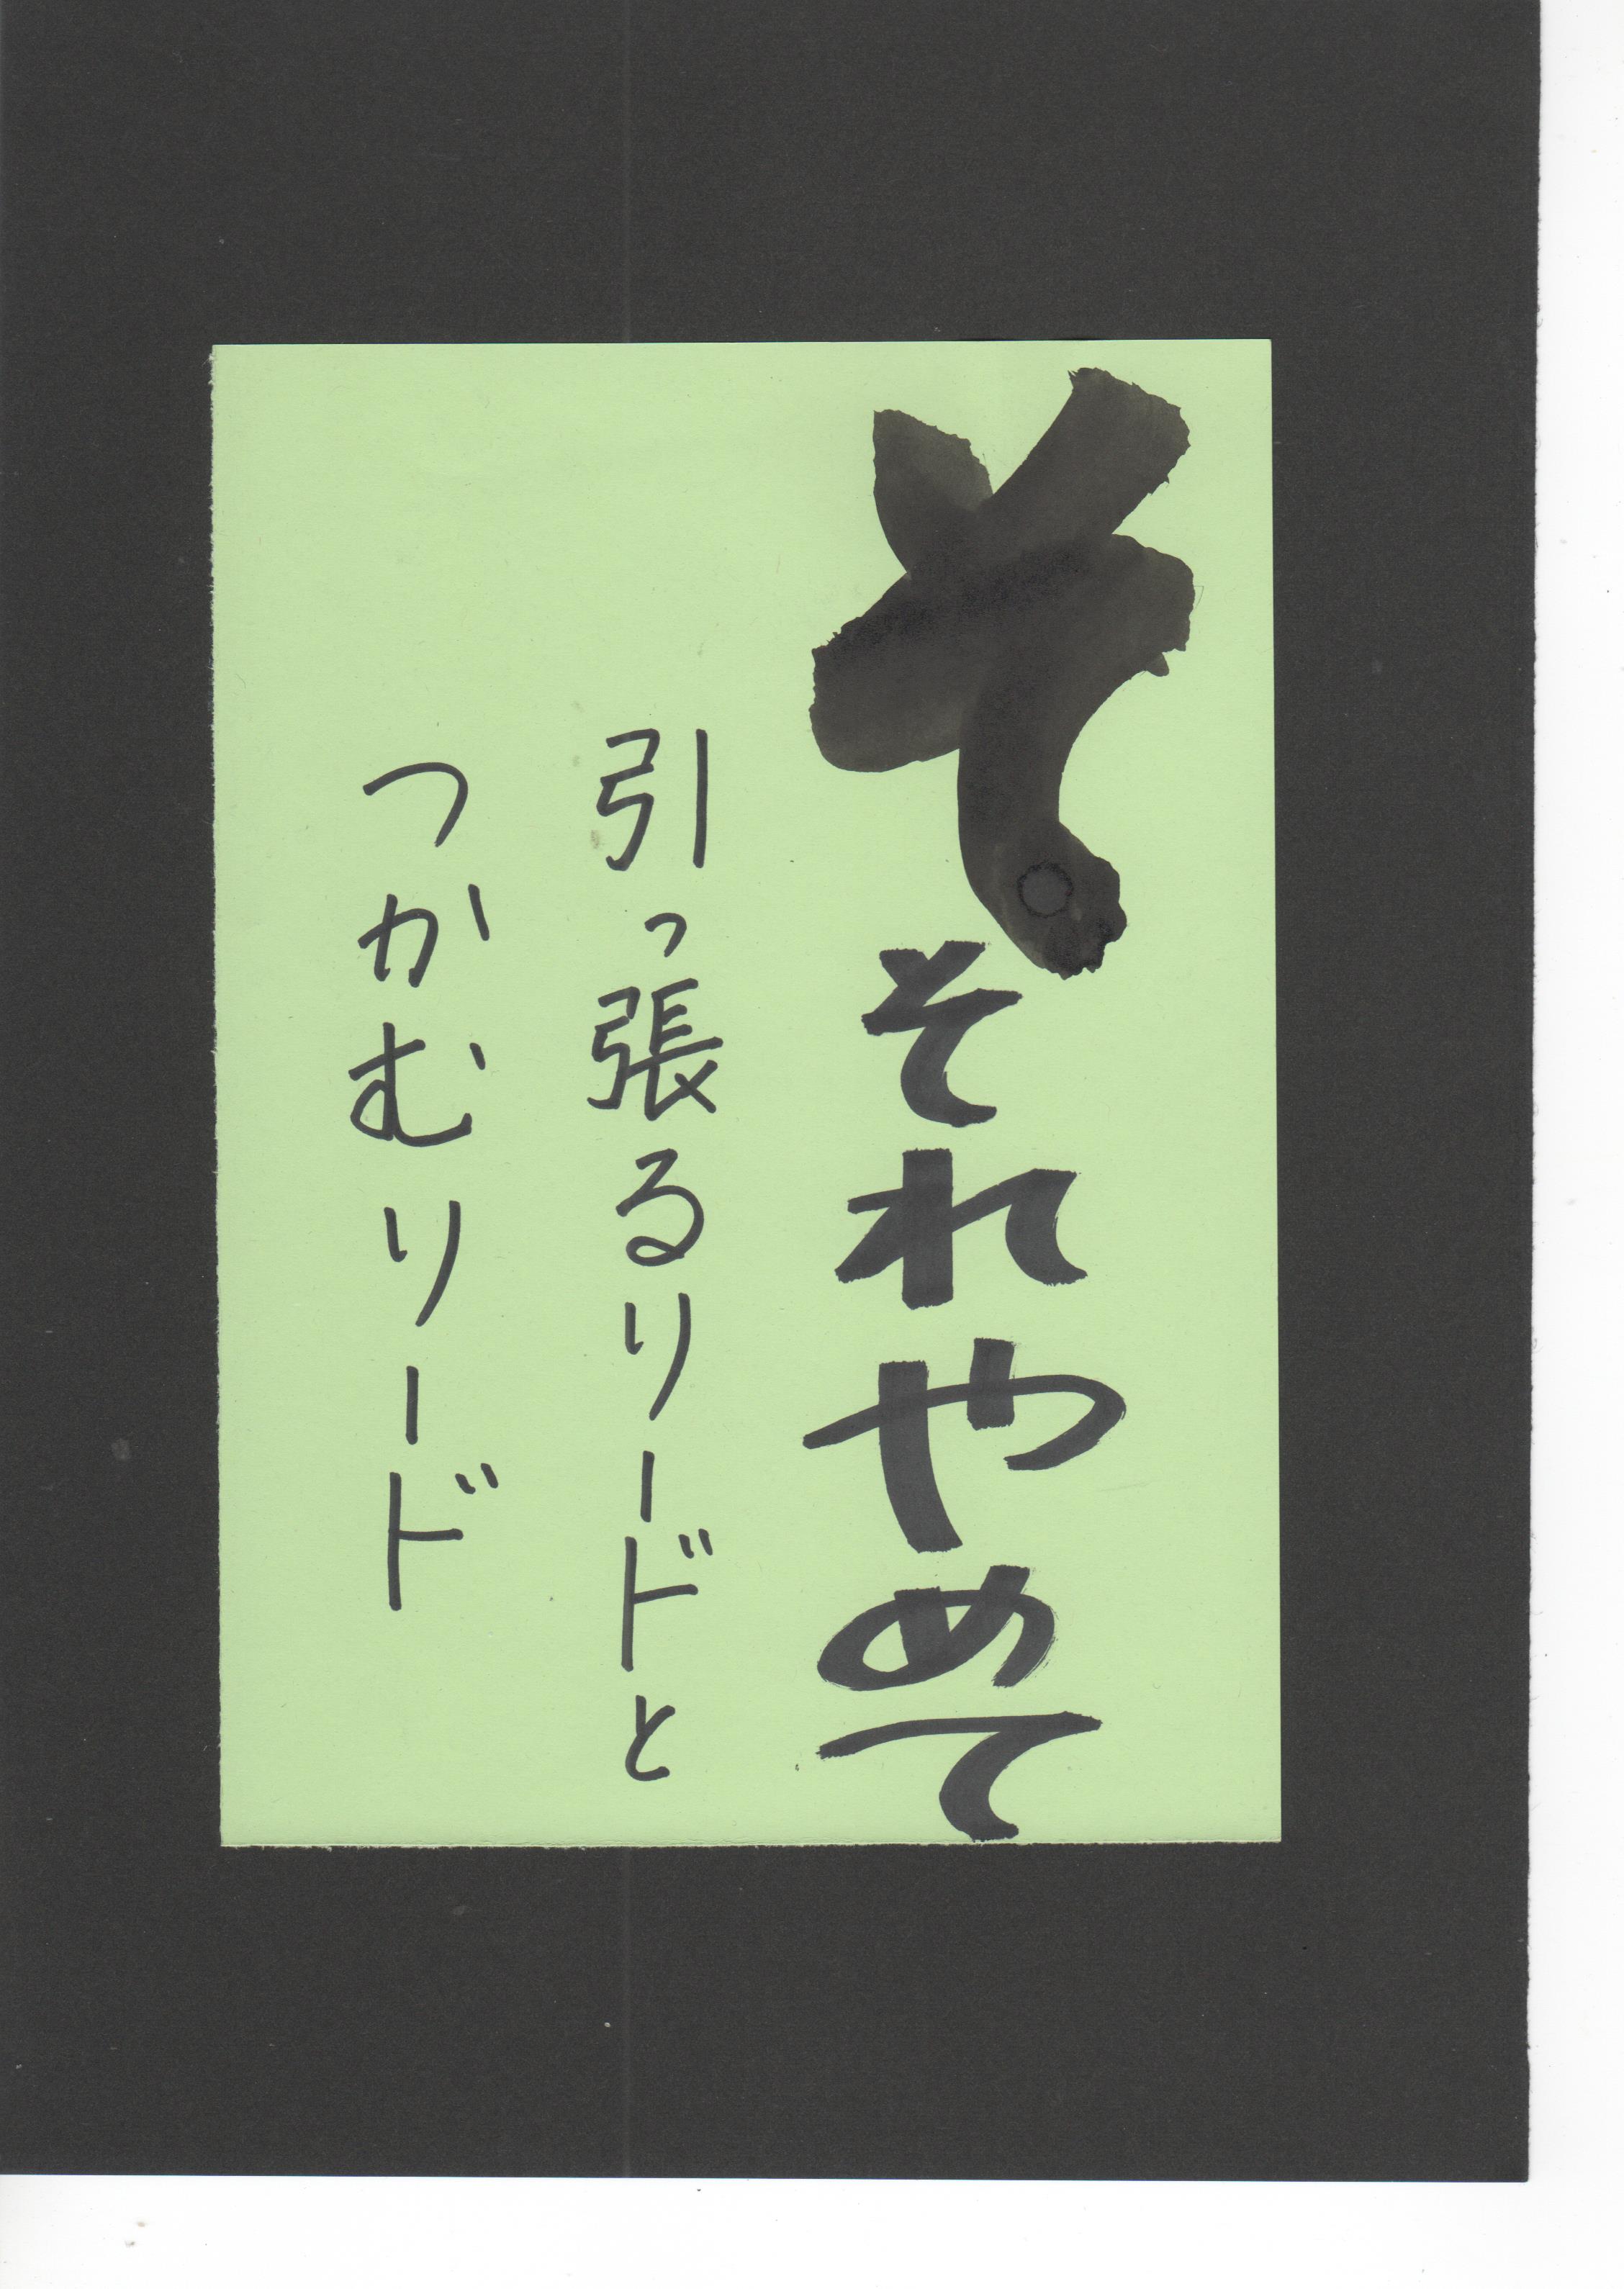 そ それやめて
引っ張るリードと
つかむリード